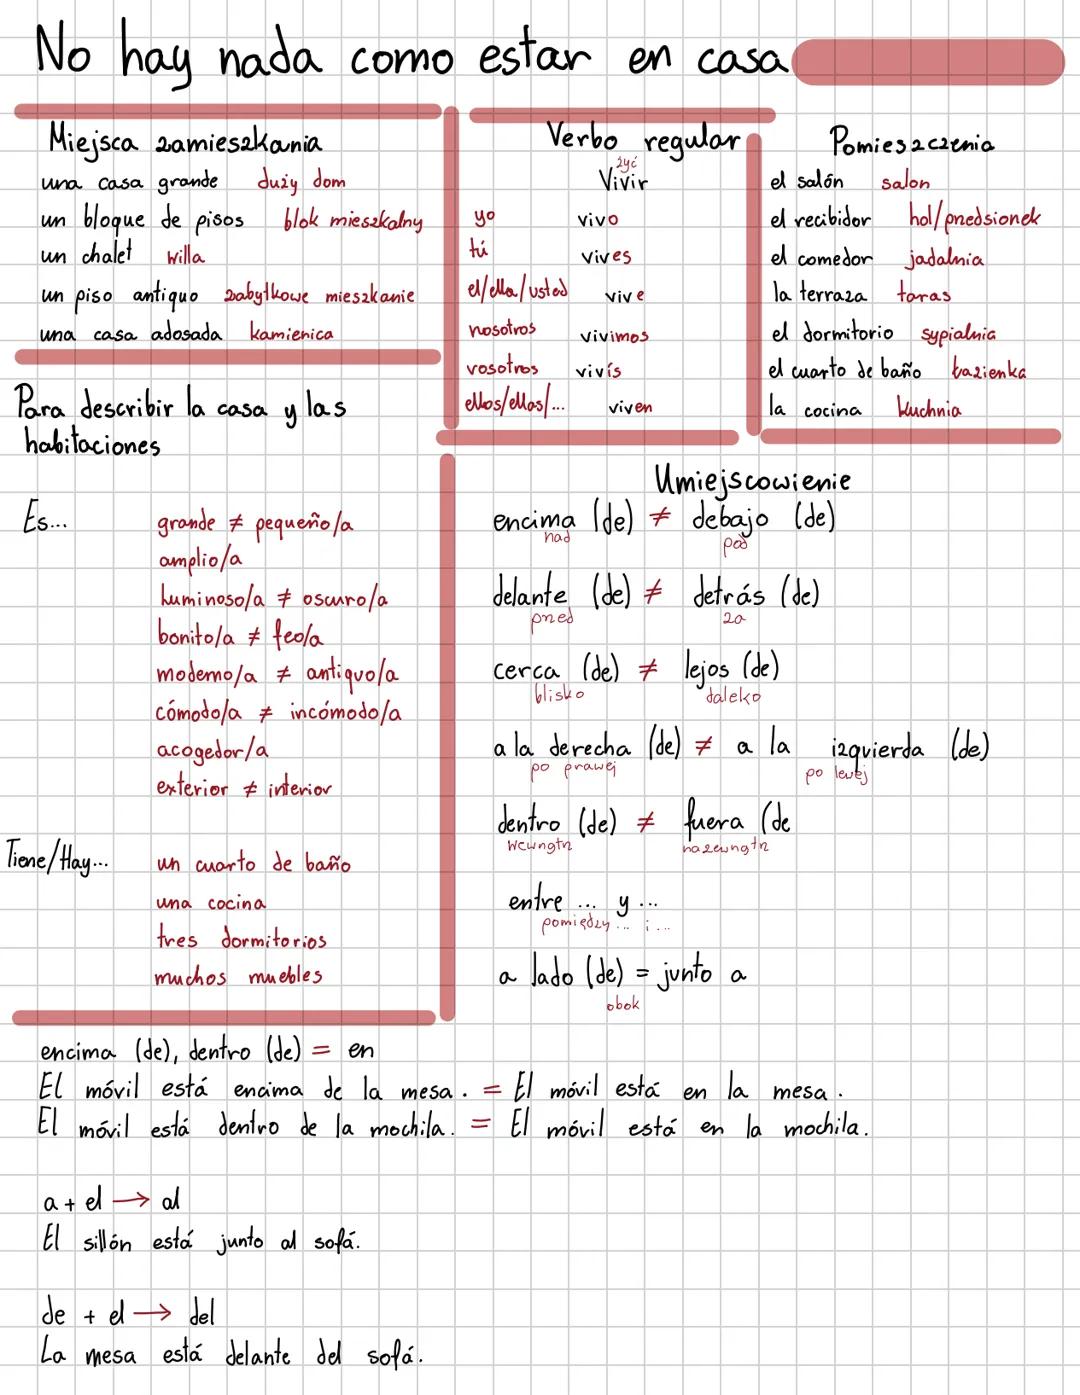 No hay nada como estar en casa
Miejsca zamieszkania
una casa grande duży dom
un bloque de pisos blok mieszkalny
un chalet willa
un piso antiguo zabytkowe mieszkanie
una casa adosada kamienica
Verbo regular
żyć
Vivir
yo vivo
tú vives
el/ella/usted vive
nosotros vivimos
vosotros vivís
ellos/ellas/... viven
Pomieszczenia
el salón salon
el recibidor hol/przedsionek
el comedor jadalnia
la terraza taras
el dormitorio sypialnia
el cuarto de baño łazienka
la cocina kuchnia
Para describir la casa y las
habitaciones
Es...
grande ≠ pequeño/a
amplio/a
luminoso/a ≠ oscuro/a
bonito/a ≠ feo/a
moderno/a ≠ antiquo/a
cómodo/a ≠ incómodo/a
acogedor/a
exterior ≠ interior
Tiene/Hay... un cuarto de baño
una cocina
tres dormitorios
muchos muebles
Umiejscowienie
encima (de) ≠ debajo (de)
nad pod
delante (de) ≠ detrás (de)
przed za
cerca (de) ≠ lejos (de)
blisko daleko
a la derecha (de) ≠ a la izquierda (de)
po prawej po lewej
dentro (de) ≠ fuera (de
wewngtrz nazewngtrz
entre ... y ...
pomiędzy ... i ...
a lado (de) = junto a
obok
encima (de), dentro (de) = en
El móvil está encima de la mesa. = El móvil está en la mesa.
El móvil está dentro de la mochila. = El móvil está en la mochila.
a + el → al
El sillón está junto al sofá.
de + el → del
La mesa está delante del sofá.